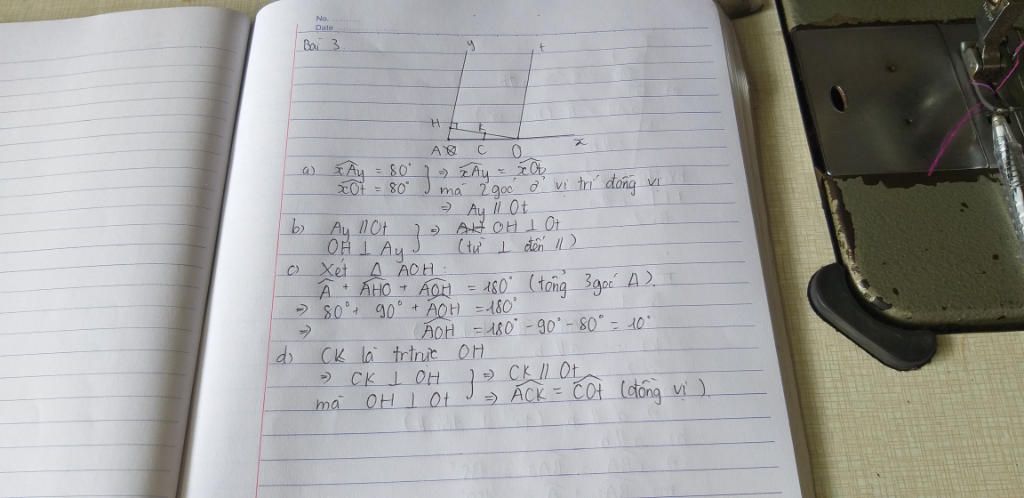 No. ..........
Date
Bài 3
y t
H K
A C O x
a) xÂy = 80° } ⇒ xÂy = xÔt
xÔt = 80° } mà 2 góc ở vị trí đồng vị
⇒ Ay // Ot
b) Ay // Ot } ⇒ OH ⊥ Ot
OH ⊥ Ay } (từ ⊥ đến //)
c) Xét Δ AOH:
Â + AHO + AOH = 180° (tổng 3 góc Δ).
⇒ 80° + 90° + AOH = 180°
⇒ AOH = 180° - 90° - 80° = 10°
d) CK là tr trực OH
⇒ CK ⊥ OH } ⇒ CK // Ot
mà OH ⊥ Ot } ⇒ ACK = COt (đồng vị).